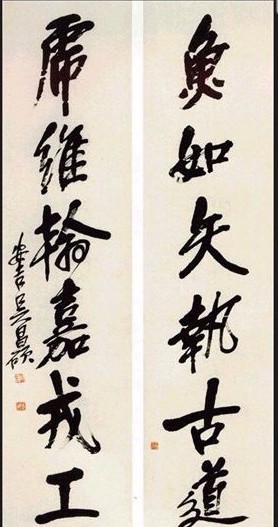 如矢執古道
虎維翰嘉戎工
安吉吳昌碩